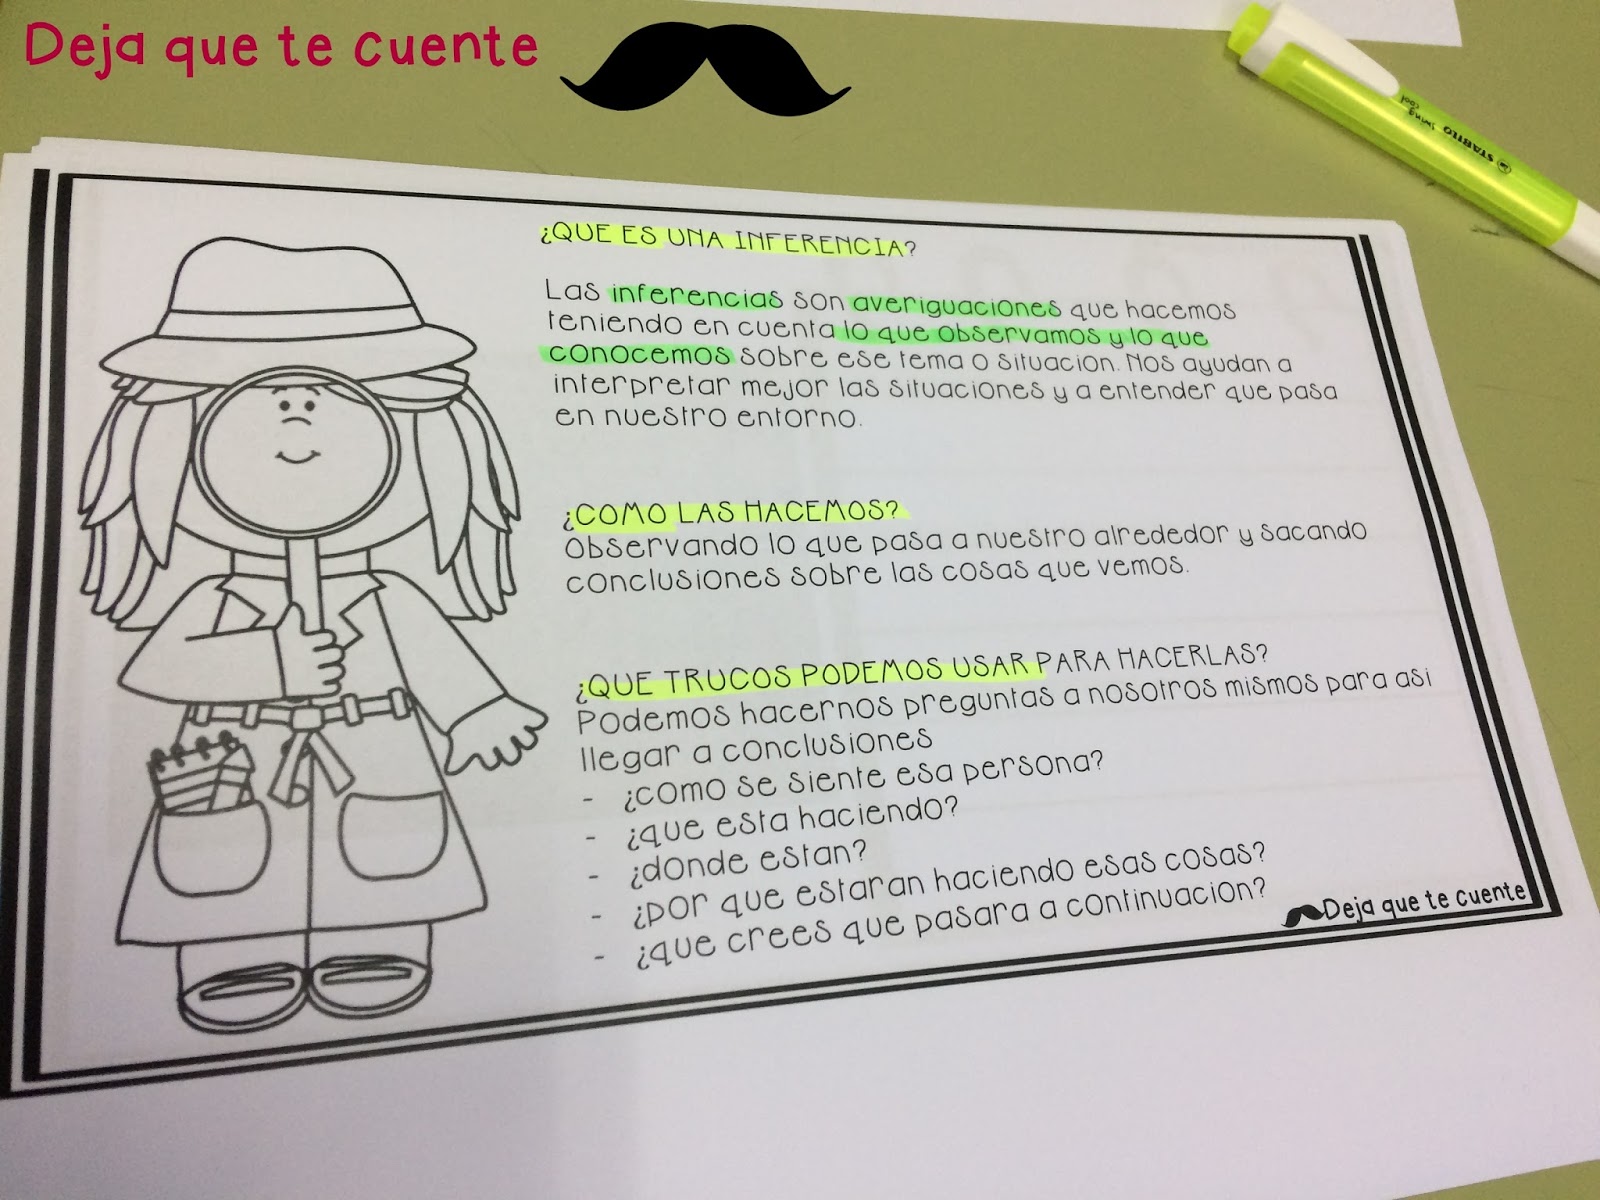 Deja que te cuente
STABILO swing cool
¿QUE ES UNA INFERENCIA?
Las inferencias son averiguaciones que hacemos
teniendo en cuenta lo que observamos y lo que
conocemos sobre ese tema o situacion. Nos ayudan a
interpretar mejor las situaciones y a entender que pasa
en nuestro entorno.
¿COMO LAS HACEMOS?
Observando lo que pasa a nuestro alrededor y sacando
conclusiones sobre las cosas que vemos.
¿QUE TRUCOS PODEMOS USAR PARA HACERLAS?
Podemos hacernos preguntas a nosotros mismos para asi
llegar a conclusiones
- ¿como se siente esa persona?
- ¿que esta haciendo?
- ¿donde estan?
- ¿por que estaran haciendo esas cosas?
- ¿que crees que pasara a continuacion?
Deja que te cuente